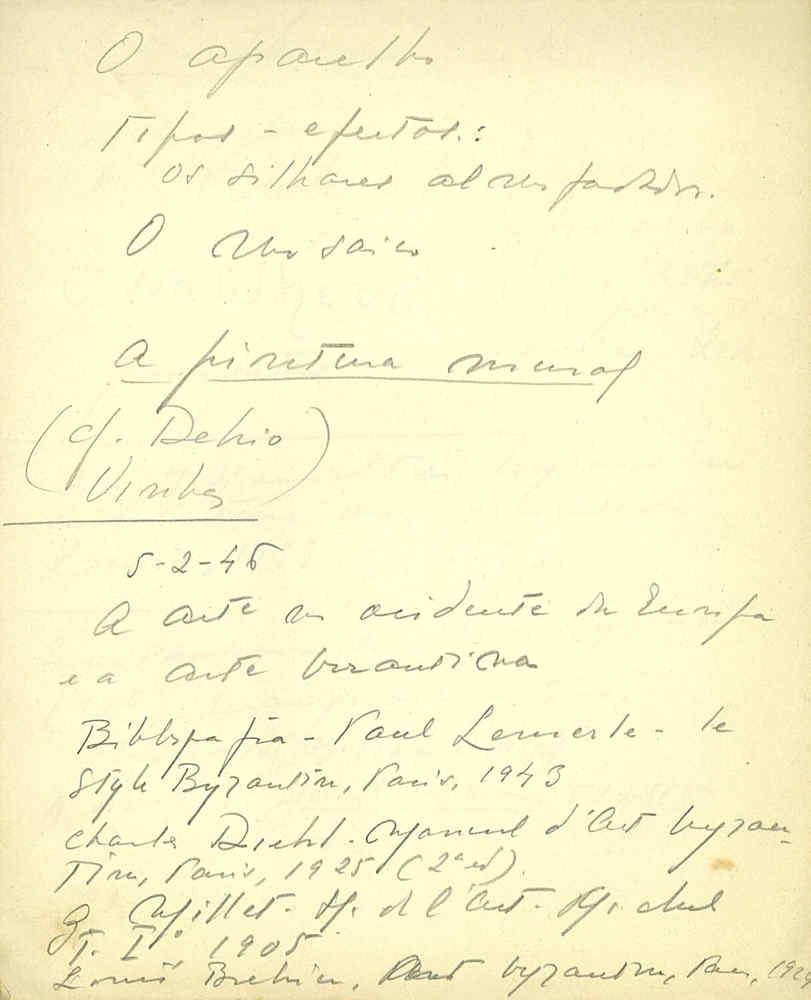 O aparelho
Tipos - efeitos.:
Os silhares almofadados.
O mosaico
A pintura mural
(cf. Dehio)
5-2-46
A arte no ocidente da Europa
e a arte bizantina
Bibliografia - Paul Lemerle - le
style Byzantin, Paris, 1943
Charles Diehl - Manuel d'Art byzan-
tin, Paris, 1925 (2ª ed).
G. Millet - H. de l'Art - Michel
T. I, 1905
Louis Brehier, Art byzantin, Paris, 192